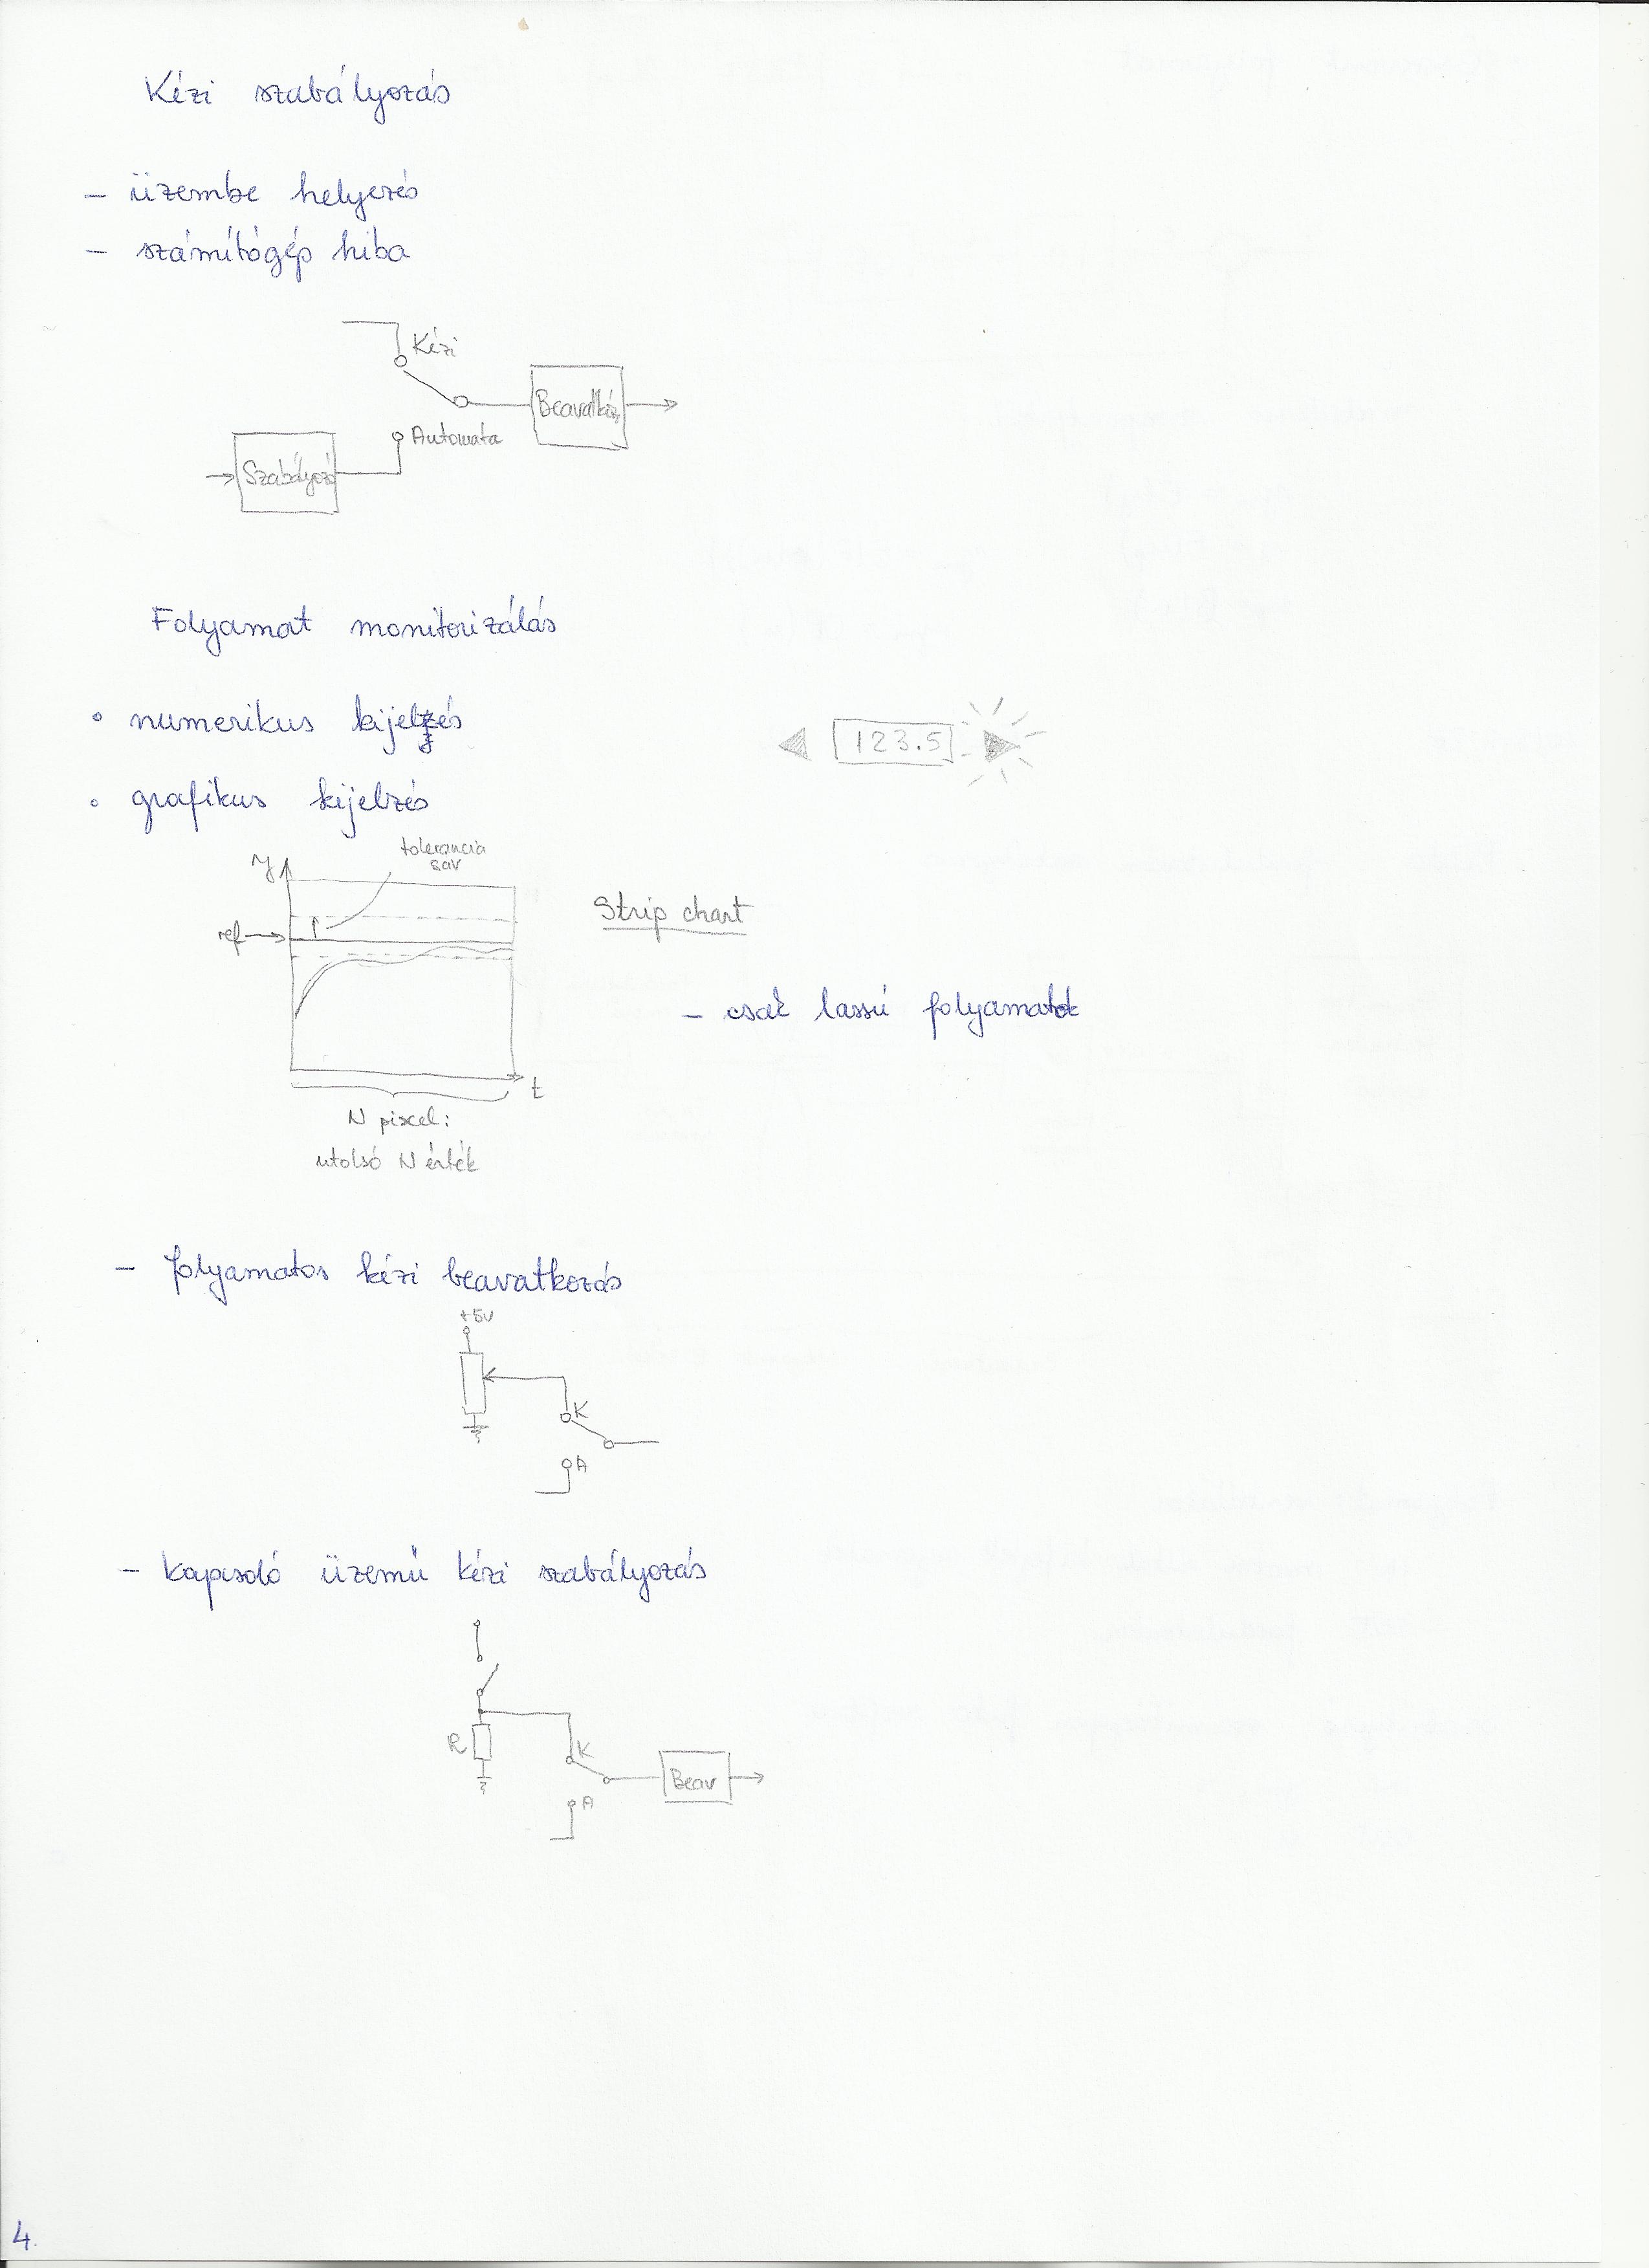 Kézi szabályozás
- üzembe helyezés
- számítógép hiba
Kézi
Beavatkóz
Automata
Szabályozó
Folyamat monitorizálás
° numerikus kijelzés
123.5
° grafikus kijelzés
tolerancia
sáv
y
ref
Strip chart
- csak lassú folyamatok
t
N pixel:
utolsó N érték
- folyamatos kézi beavatkozás
+5V
K
A
- kapcsoló üzemű kézi szabályozás
R
K
Beav
A
4.